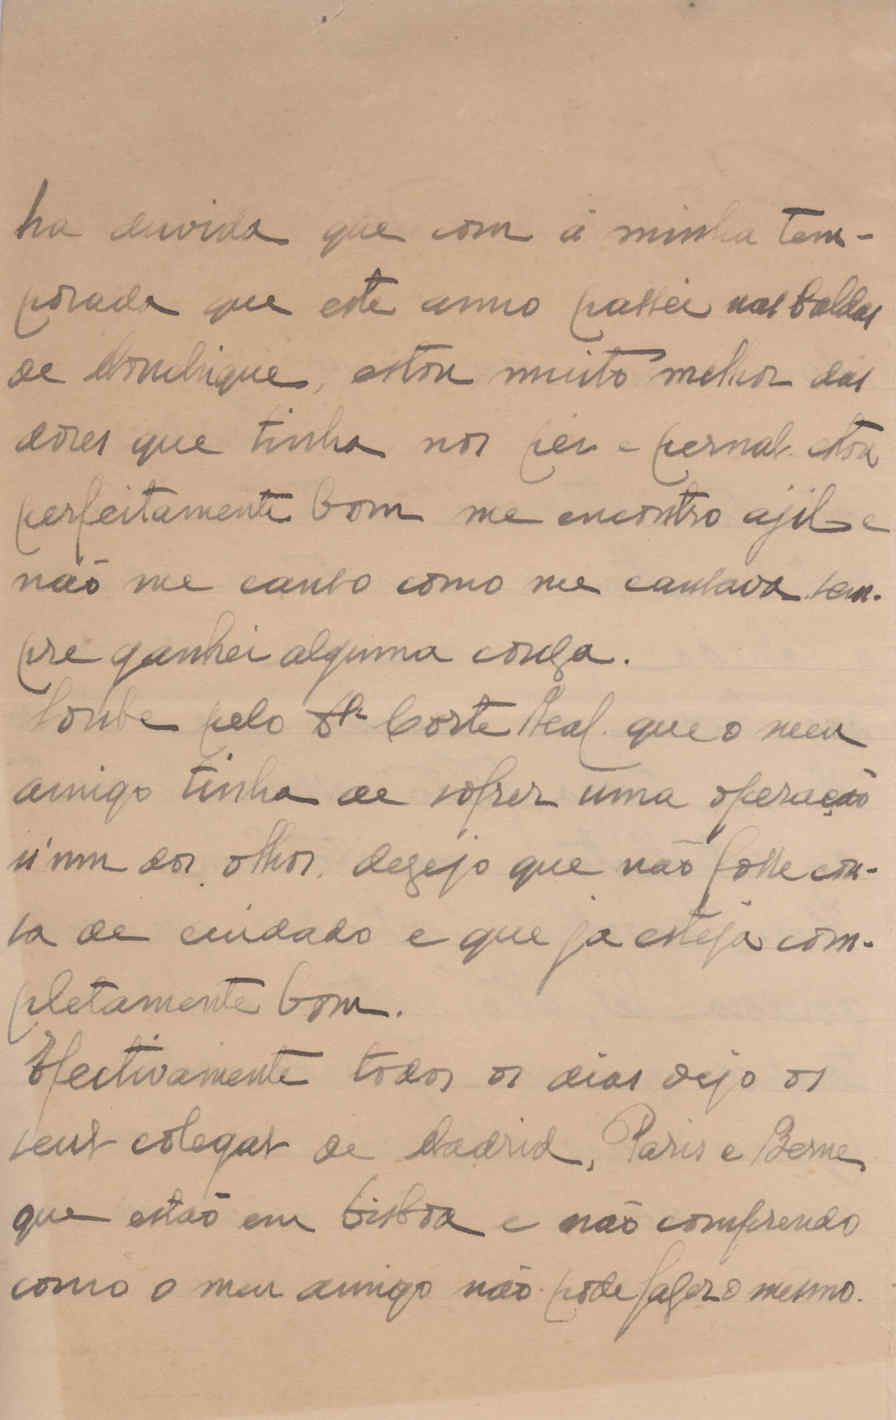 ha duvida que com a minha tem-
porada que este anno passei nas Caldas
de Monchique, estou muito melhor das
dores que tinha nos pés e pernas estou
perfeitamente bom me encontro ajil e
não me canso como me cansava sem-
pre ganhei alguma couza.
Soube pelo Sr. Corte Real que o meu
amigo tinha de sofrer uma operação
n'um dos olhos. dezejo que não fosse cou-
sa de cuidado e que ja esteja com-
pletamente bom.
Efectivamente todos os dias vejo os
seus colegas de Madrid, Paris e Berne
que estão em Lisboa e não comprendo
como o meu amigo não pode fazer o mesmo.